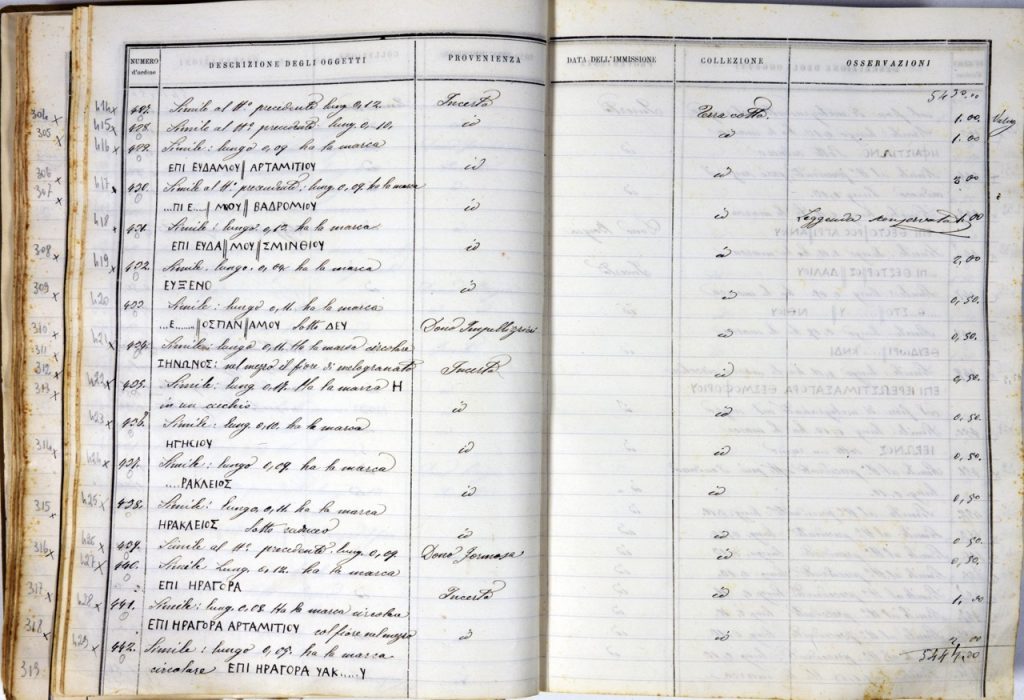 NUMERO d'ordine DESCRIZIONE DEGLI OGGETTI PROVENIENZA DATA DELL'IMMISSIONE COLLEZIONE OSSERVAZIONI
5430.00
427. Simile al N.° precedente lung. 0,12. Incerta Terra cotta 1.00
428. Simile al N.° precedente lung. 0,10. id id 1.00
429. Simile: lungo 0,09 ha la marca
ΕΠΙ ΕΥΔΑΜΟΥ || ΑΡΤΑΜΙΤΙΟΥ id id 2.00
430. Simile al N.° precedente: lung. 0,09. ha la marca
...ΠΙ Ε....|| ΜΟΥ || ΒΑΔΡΟΜΙΟΥ id id Leggenda conservata 1.00
431. Simile: lungo 0,12. ha la marca
ΕΠΙ ΕΥΔΑ || ΜΟΥ || ΣΜΙΝΘΙΟΥ id id 2,00
432. Simile. lungo. 0,08. ha la marca
ΕΥΞΕΝΟ id id 0,50.
433. Simile: lungo 0,11. ha la marca
...Ε....... || ΟΣΠΑΝ || ΑΜΟΥ sotto ΔΕΥ Dono id 0,50.
434. Simile: lungo 0,11. Ha la marca circolare
ΞΗΝΩΝΟΣ: nel mezzo il fiore di melogranato Incerta id 0,50
435. Simile: lung. 0,17. Ha la marca Η
in un cerchio id id 0,50.
436. Simile: lung. 0,10. ha la marca
ΗΓΗΣΙΟΥ id id 0,50.
437. Simile: lungo 0,09. ha la marca
.....ΡΑΚΛΕΙΟΣ id id 0,50
438. Simile: lungo, 0,11. ha la marca
ΗΡΑΚΛΕΙΟΣ sotto caduceo id id 0.50.
439. Simile al N.° precedente. lung. 0,09. Dono Formosa id 0.50.
440. Simile lung. 0,12. ha la marca
ΕΠΙ ΗΡΑΓΟΡΑ Incerta id 1,00
441. Simile: lung. 0,08. Ha la marca circolare
ΕΠΙ ΗΡΑΓΟΡΑ ΑΡΤΑΜΙΤΙΟΥ col fiore nel mezzo id id 2,00
442. Simile: lungo 0,05. ha la marca
circolare ΕΠΙ ΗΡΑΓΟΡΑ ΥΑΚ......Υ